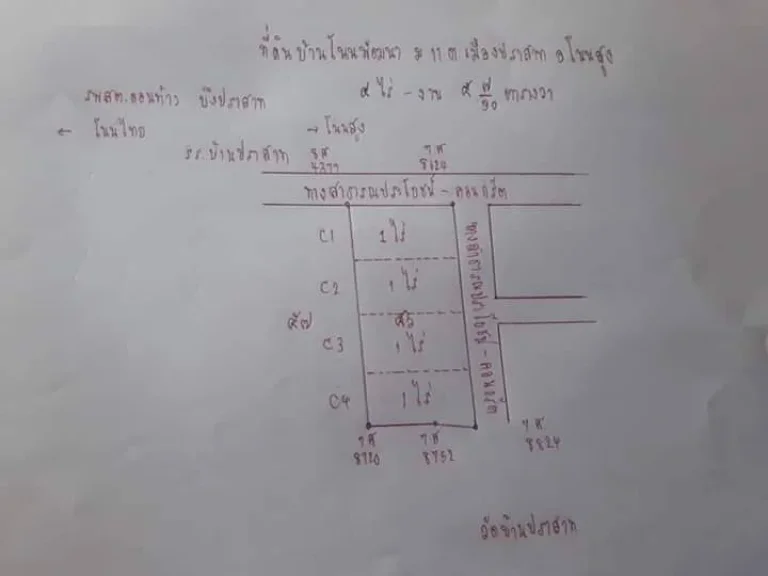 ที่ดินบ้านโนนพัฒนา ม 11 ต เมืองปราสาท อ โนนสูง
รพสต.ดอนท้าว บึงปราสาท ๔ ไร่ - งาน ๕ ๗/๑๐ ตารางวา
← โนนไทย → โนนสูง
รร.บ้านปราสาท
ทางสาธารณประโยชน์ - คอนกรีต
C1 1 ไร่
C2 1 ไร่
C3 1 ไร่
C4 1 ไร่
ทางสาธารณประโยชน์ - คอนกรีต
วัดบ้านปราสาท